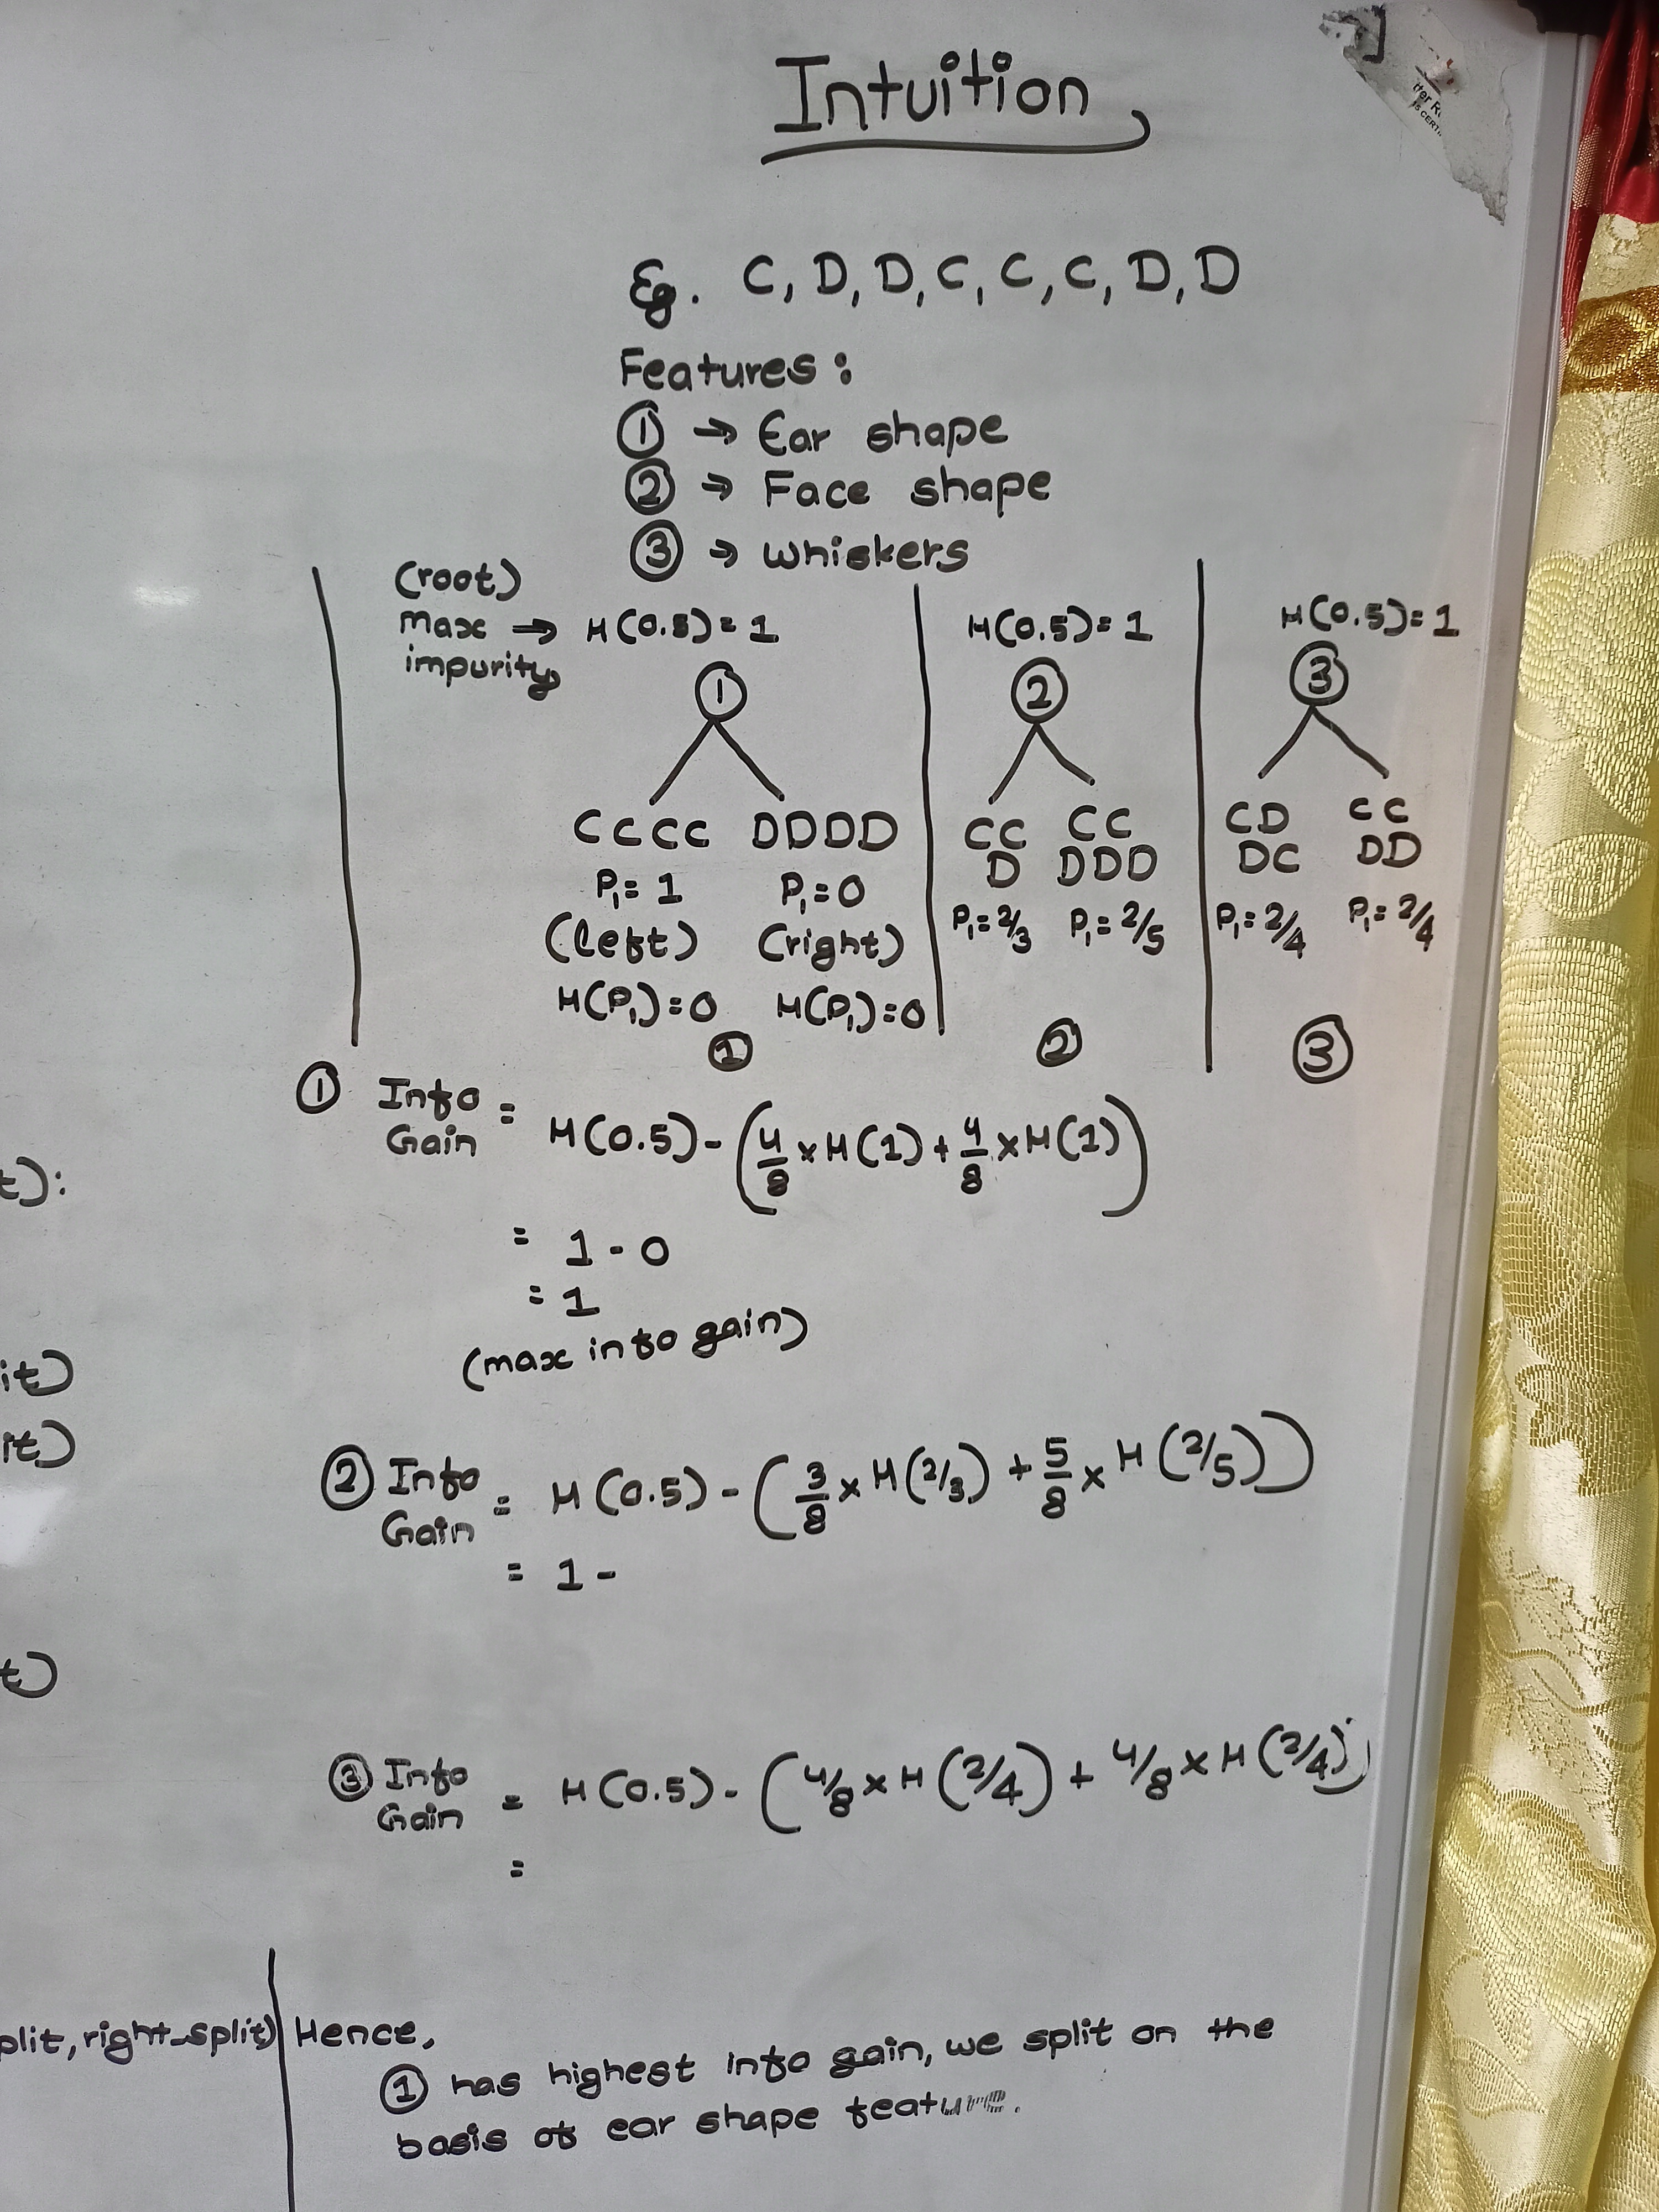 Intuition
Eg. C, D, D, C, C, C, D, D
Features:
① → Ear shape
② → Face shape
③ → whiskers
(root)
max → H(0.5) = 1
impurity
①
CCCC DDDD
P₁ = 1 P₁ = 0
(left) (right)
H(P₁) = 0 H(P₁) = 0
①
H(0.5) = 1
②
CC CC
D DDD
P₁ = 2/3 P₁ = 2/5
②
H(0.5) = 1
③
CD CC
DC DD
P₁ = 2/4 P₁ = 2/4
③
① Info Gain = H(0.5) - (4/8 × H(1) + 4/8 × H(1))
= 1 - 0
= 1
(max info gain)
② Info Gain = H(0.5) - (3/8 × H(2/3) + 5/8 × H(2/5))
= 1 -
③ Info Gain = H(0.5) - (4/8 × H(2/4) + 4/8 × H(2/4))
=
Hence,
① has highest info gain, we split on the
basis of ear shape feature.
t):
it)
it)
t)
plit, right_split)